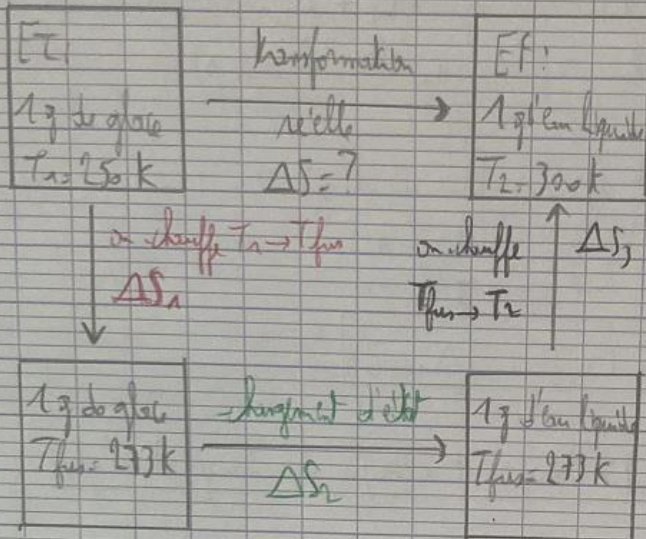 EI:
1g de glace
T₁ = 250 K
transformation
réelle
ΔS = ?
Ef:
1g d'eau liquide
T₂ = 300 K
on chauffe T₁ → Tfus
ΔS₁
on chauffe
Tfus → T₂
ΔS₃
1g de glace
Tfus = 273 K
changement d'état
ΔS₂
1g d'eau liquide
Tfus = 273 K